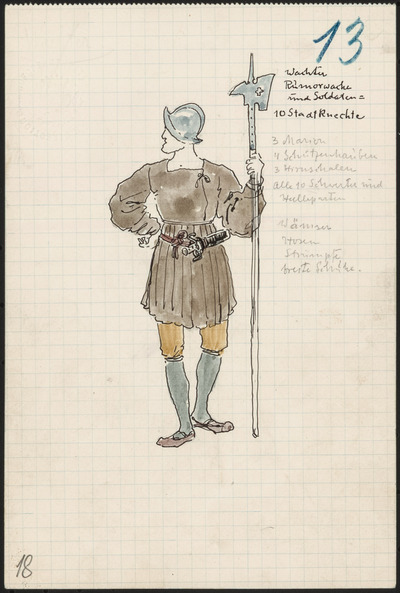 13
Wachter
Rumorwache
und Soldaten =
10 Stadtknechte
3
4 Schützenhauben
3 Hirnschalen
alle 10 Schwerter und
Helleparten
Hosen
Strümpfe
breite Schuhe.
18